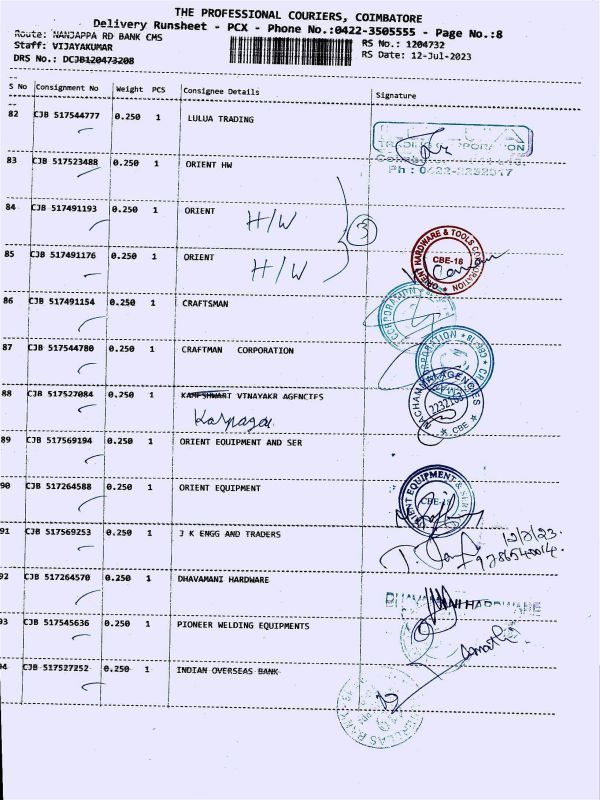 THE PROFESSIONAL COURIERS, COIMBATORE
Delivery Runsheet - PCX - Phone No.:0422-3505555 - Page No.:8
Route: NANJAPPA RD BANK CMS
RS No.: 1204732
Staff: VIJAYAKUMAR
RS Date: 12-Jul-2023
DRS No.: DCJB120473208
S No Consignment No Weight PCS Consignee Details Signature
82 CJB 517544777 0.250 1 LULUA TRADING
TRADING CORPORATION
Ph : 0422-2232517
83 CJB 517523488 0.250 1 ORIENT HW
84 CJB 517491193 0.250 1 ORIENT H/W
3
85 CJB 517491176 0.250 1 ORIENT H/W
ORIENT HARDWARE & TOOLS CORPORATION
CBE-18
86 CJB 517491154 0.250 1 CRAFTSMAN
CORPORATION
87 CJB 517544780 0.250 1 CRAFTMAN CORPORATION
CORPORATION
88 CJB 517527084 0.250 1 KAMESHWARI VINAYAKR AGENCIES
AGENCIES
CBE
89 CJB 517569194 0.250 1 ORIENT EQUIPMENT AND SER
90 CJB 517264588 0.250 1 ORIENT EQUIPMENT
ORIENT EQUIPMENT & SERV
CBE-18
91 CJB 517569253 0.250 1 J K ENGG AND TRADERS
92 CJB 517264570 0.250 1 DHAVAMANI HARDWARE
HARDWARE
93 CJB 517545636 0.250 1 PIONEER WELDING EQUIPMENTS
94 CJB 517527252 0.250 1 INDIAN OVERSEAS BANK